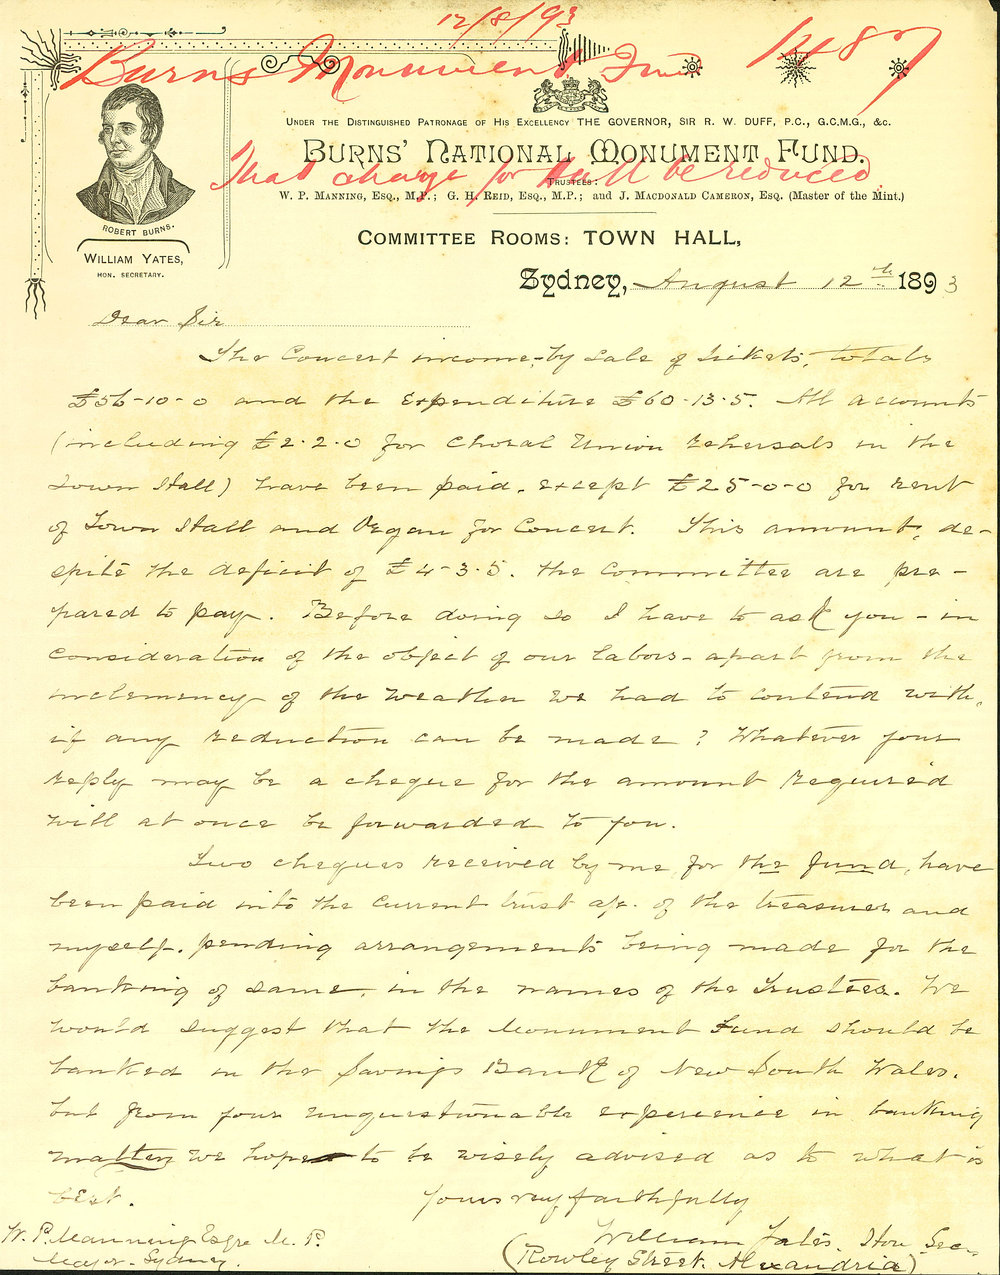 12/8/93
Burns Monument Fund 1487
UNDER THE DISTINGUISHED PATRONAGE OF HIS EXCELLENCY THE GOVERNOR, SIR R. W. DUFF, P.C., G.C.M.G., &c.
BURNS' NATIONAL MONUMENT FUND.
That charge for Hall be reduced
TRUSTEES:
W. P. MANNING, ESQ., M.P.; G. H. REID, ESQ., M.P.; AND J. MACDONALD CAMERON, ESQ. (Master of the Mint.)
ROBERT BURNS.
WILLIAM YATES,
HON. SECRETARY.
COMMITTEE ROOMS: TOWN HALL,
Sydney, August 12th 1893
Dear Sir
The Concert income, by sale of tickets, totals
£56-10-0 and the expenditure £60-13-5. All accounts
(including £2-2-0 for Choral Union rehersals in the
Town Hall) have been paid, except £25-0-0 for rent
of Town Hall and Organ for Concert. This amount, de-
spite the deficit of £4-3-5. the committee are pre-
pared to pay. Before doing so I have to ask you - in
consideration of the object of our labors - apart from the
inclemency of the weather we had to contend with,
if any reduction can be made? Whatever your
reply may be a cheque for the amount required
will at once be forwarded to you.
Two cheques received by me, for the fund, have
been paid into the current trust a/c. of the treasurer and
myself. pending arrangements being made for the
banking of same, in the names of the Trustees. We
would suggest that the Monument Fund should be
banked in the Savings Bank of New South Wales.
but from your unquestionable experience in banking
matters we hope to be wisely advised as to what is
best. Yours very faithfully
William Yates. Hon Sec.
W. P. Manning Esqre M. P.
Mayor. Sydney.
(Rowley Street. Alexandria)